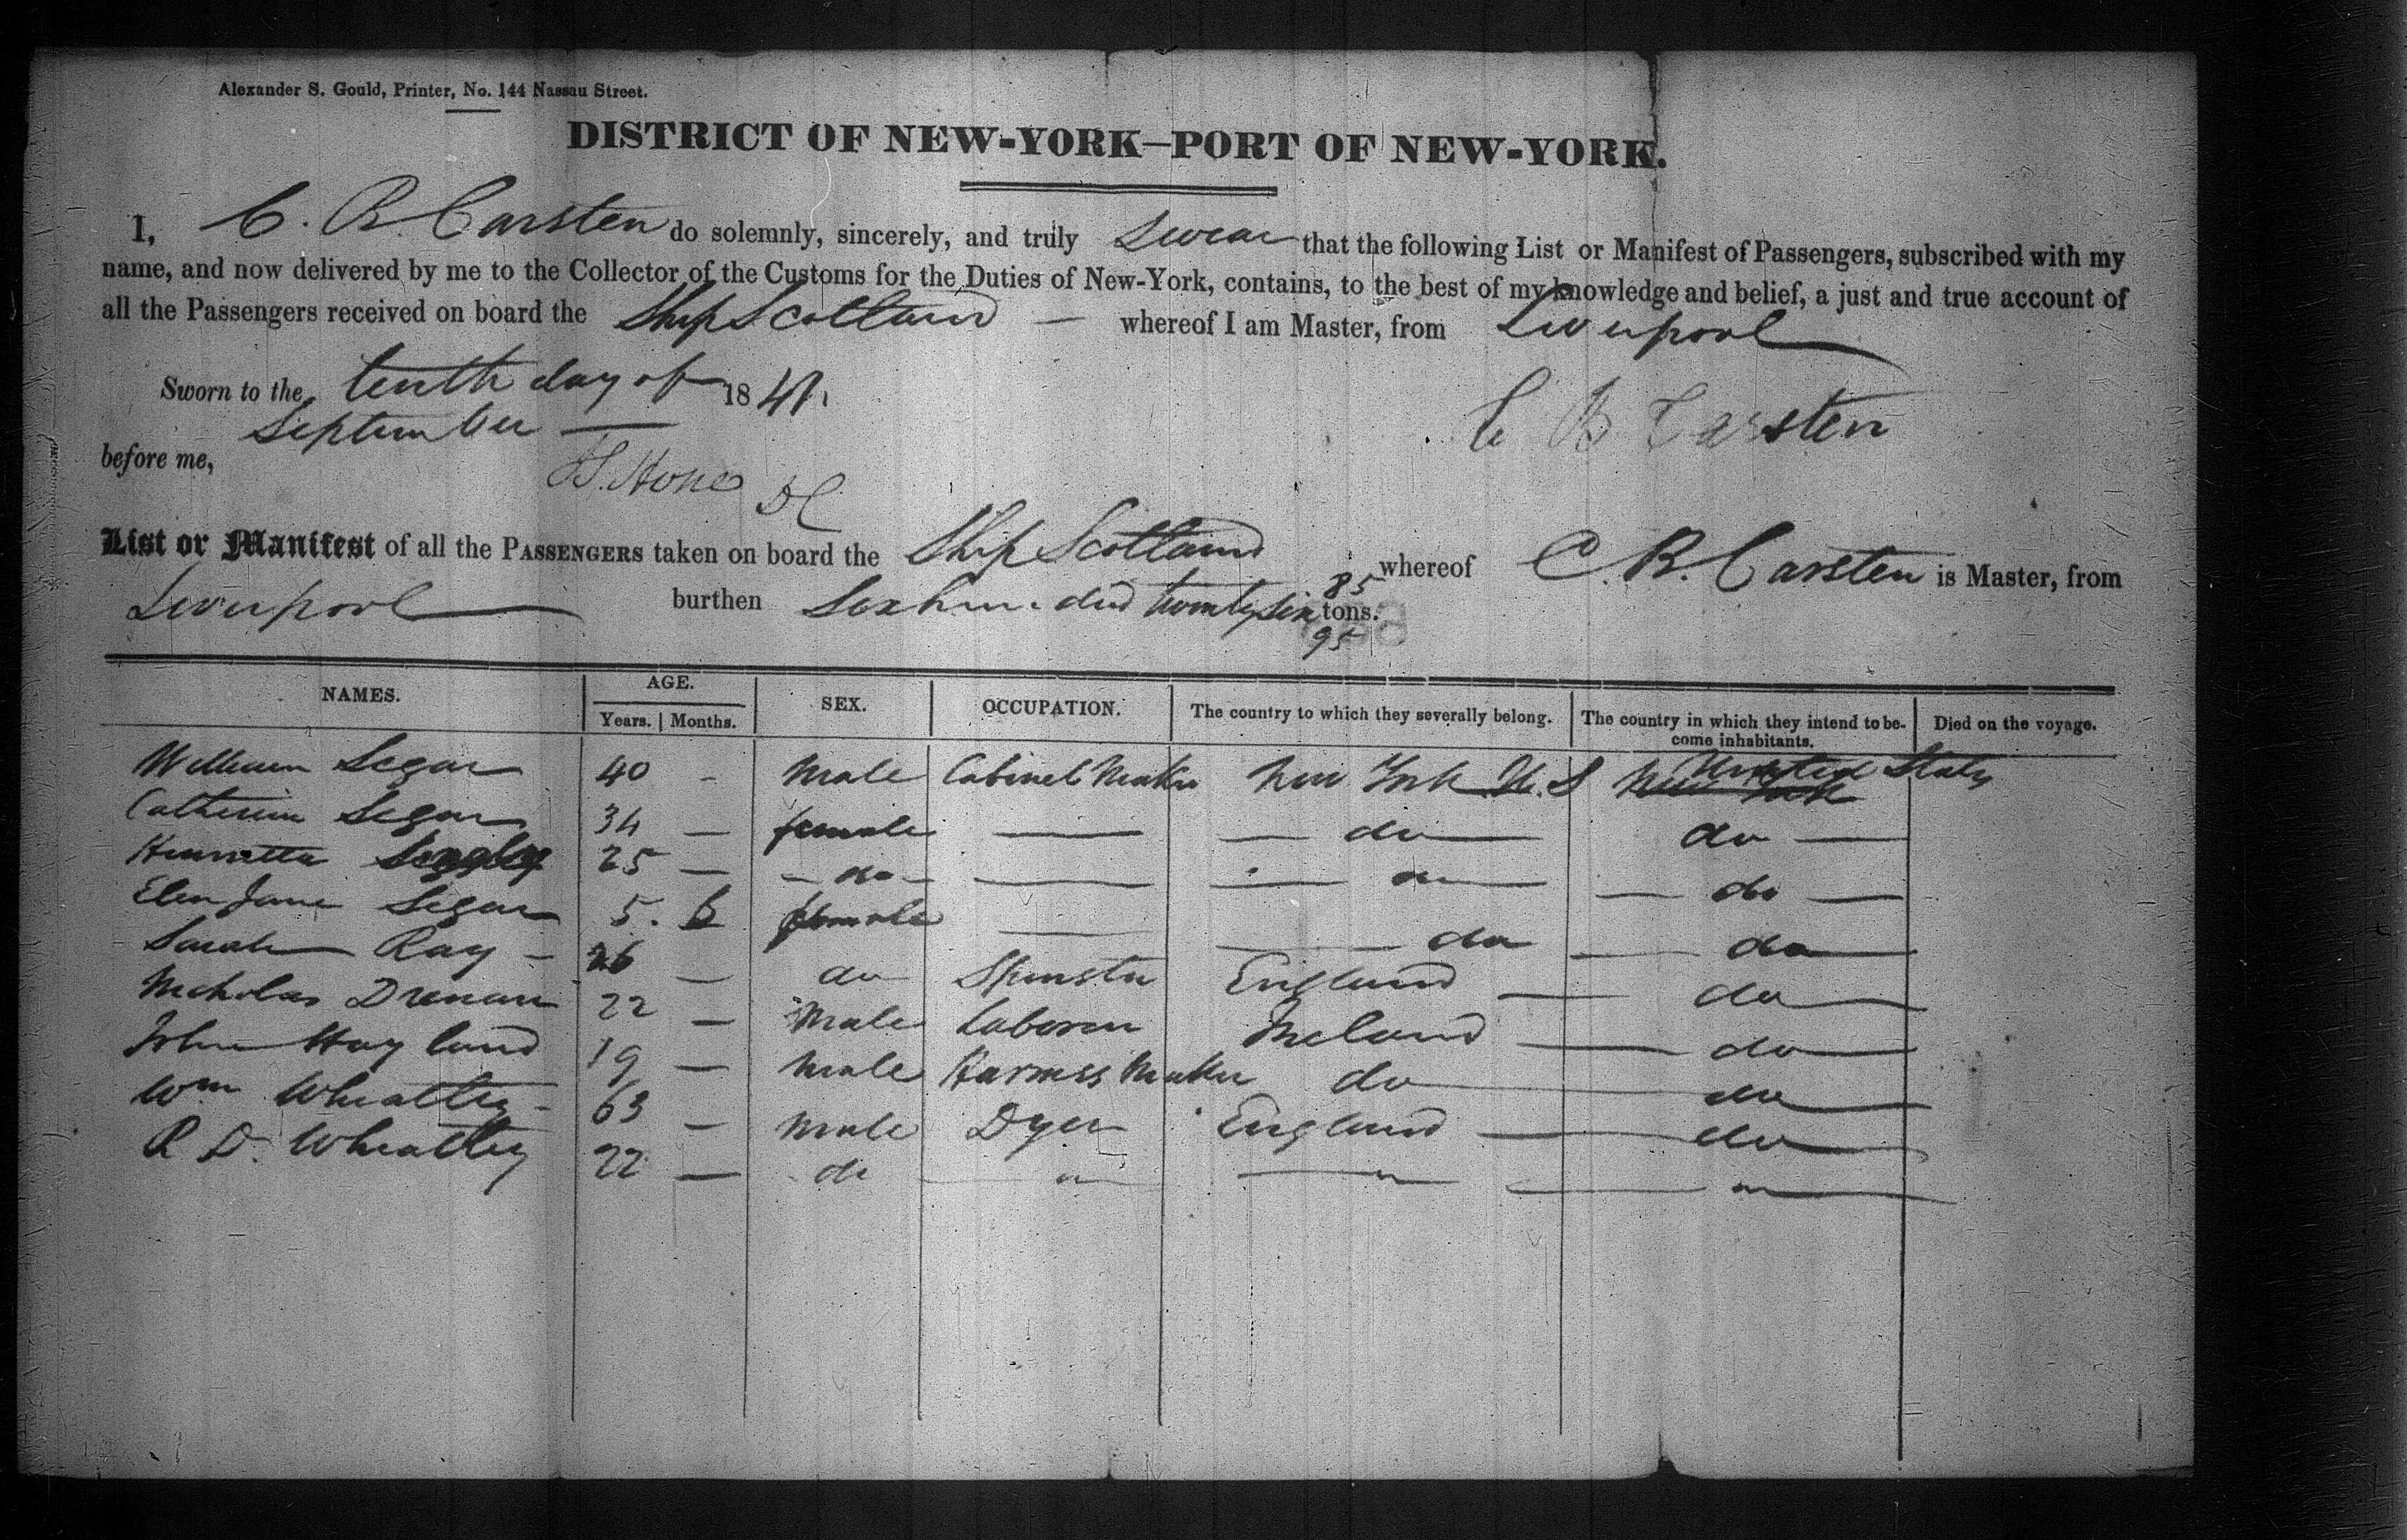 Alexander S. Gould, Printer, No. 144 Nassau Street.
DISTRICT OF NEW-YORK—PORT OF NEW-YORK.
I, C. B. Carsten do solemnly, sincerely, and truly Swear that the following List or Manifest of Passengers, subscribed with my
name, and now delivered by me to the Collector of the Customs for the Duties of New-York, contains, to the best of my knowledge and belief, a just and true account of
all the Passengers received on board the Ship Scotland — whereof I am Master, from Liverpool
Sworn to the tenth day of 1841.
September —
C B Carsten
before me,
Hone DC
List or Manifest of all the PASSENGERS taken on board the Ship Scotland whereof C. B. Carsten is Master, from
Liverpool burthen Six hundred twenty six 85/95 tons.
NAMES. AGE. SEX. OCCUPATION. The country to which they severally belong. The country in which they intend to become inhabitants. Died on the voyage.
Years. Months.
William Segar 40 - Male Cabinet Maker New York U.S United States
Catherine Segar 34 — female — do — do —
Henrietta 25 — do — — do — do —
Ellen Jane Segar 5. 6 female — do — do
Sarah Ray - 26 — do Spinster England — do
Nicholas Drenan 22 — Male Laborer Ireland — do
John Hayland 19 — Male Harness Maker do — do
Wm Wheatley - 63 — Male Dyer England — do
R D. Wheatley 22 — do — " — " — "